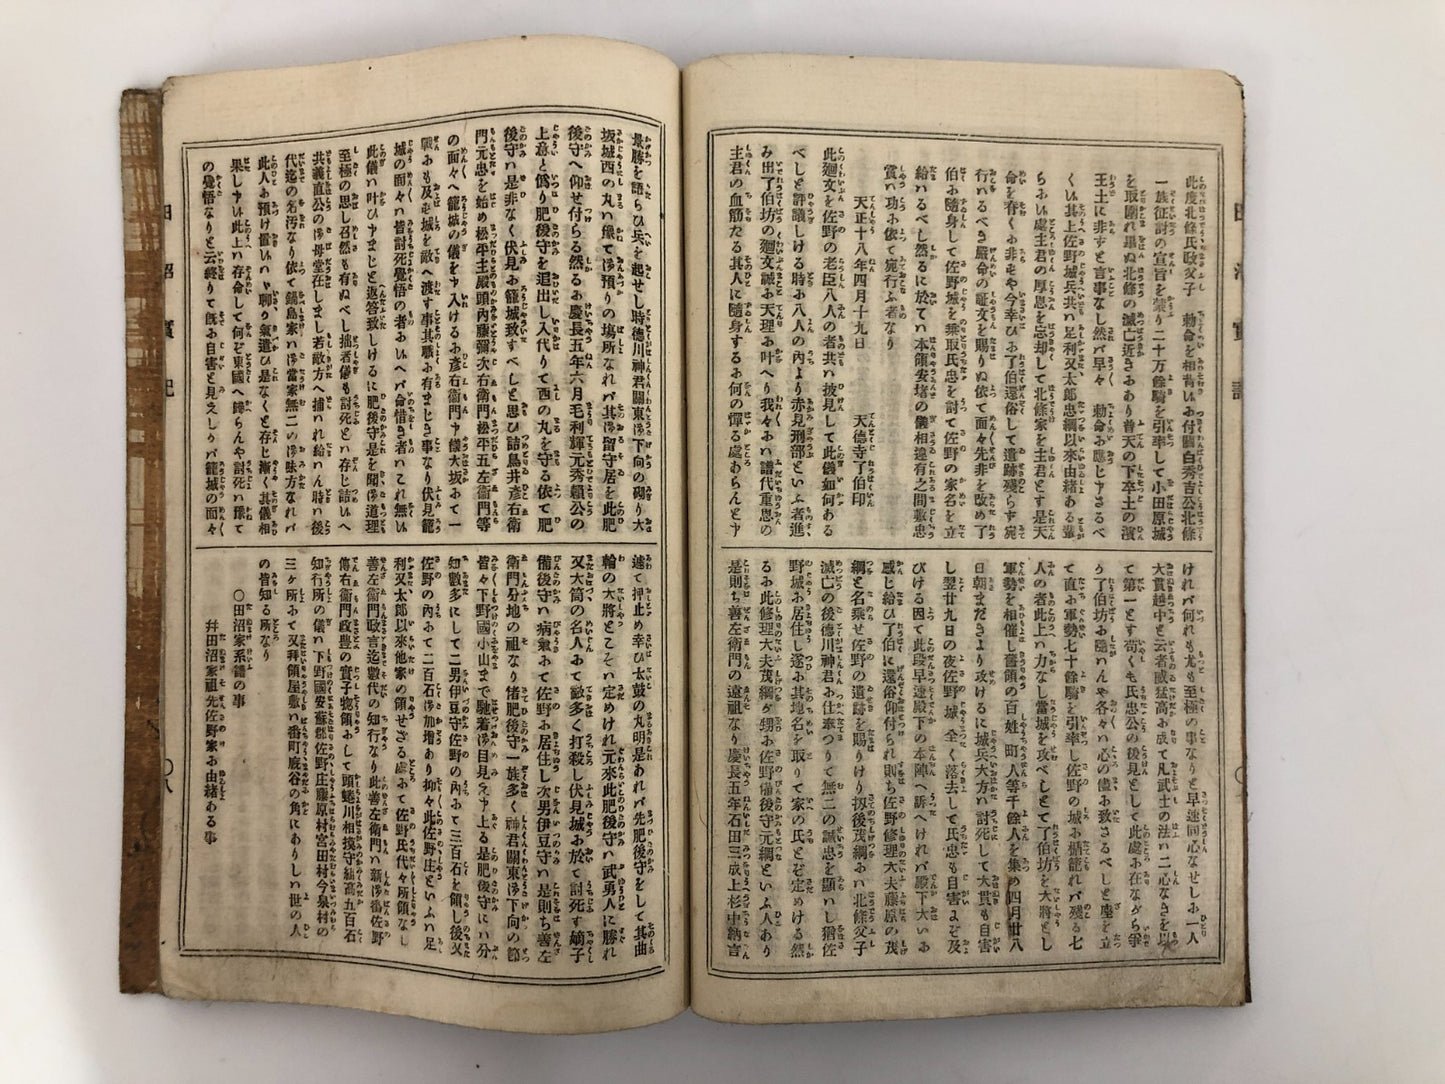 此度北條氏政父子　勅命を相背いふ付關白秀吉公北條
一族征討の宣旨を蒙り二十万餘騎を引率して小田原城
を取圍れ畢ぬ北條の滅亡近きあり普天の下卒土の濱
王土に非ずと言事なし然バ早々　勅命お應じ申さるべ
くい其上佐野城兵共ハ足利又太郎忠綱以來由緒ある輩
らふい處主君の厚恩を忘却して北條家を主君とす是天
命を背くお非ずや今幸ひお了伯還俗して遺跡殘らず宛
行ハるべき嚴命の証文を賜りぬ依て面々先非を改め了
伯お隨身して佐野城を乘取氏忠を討て佐野の家名を立
給ハるべし然るに於てハ本領安堵の儀相違有之間敷忠
賞ハ功お依て宛行ふ者なり
天正十八年四月十九日　天德寺了伯印
此廻文を佐野の老臣八人の者共ハ披見して此儀如何ある
べしと評議しける時お八人の內より赤見刑部といふ者進
み出了伯坊の廻文誠お天理お叶へり我々おハ譜代重恩の
主君の血筋たる其人に隨身するお何の憚る處あらんと申
けれバ何れも尤も至極の事なりと早速同心なせしお一人
大貫越中と云者威猛高お成て凡武士の法ハ二心なきを以
て第一とす苟くも氏忠公の後見として此處お在ながら爭
う了伯坊お隨ハんや各々ハ心の儘お致さるべしと座を立
て直お軍勢七十餘騎を引率し佐野の城お楯籠れバ殘る七
人の者此上ハ力なし當城を攻べしとて了伯坊を大將とし
軍勢を相催し舊領の百姓町人等千餘人を集め四月廿八
日朝まださより攻けるに城兵大方ハ討死して大貫も自害
し翌廿九日の夜佐野城全く落去して氏忠も自害よぞ及
びける因て此段早速殿下の本陣へ訴へけれバ殿下大いお
感じ給ひ了伯に還俗仰付られ則ち佐野修理大夫藤原の茂
綱と名乘せ佐野の遺跡を賜りけり扨後茂綱おハ北條父子
滅亡の後德川神君お仕奉つりて無二の誠忠を顯ハし猶佐
野城お居住し遂お其地名を取りて家の氏とぞ定めける然
るお此修理大夫茂綱が甥お佐野備後守元綱といふ人あり
是則ち善左衞門の遠祖なり慶長五年石田三成上杉中納言
田沼實記
景勝を語らひ兵を起せし時德川神君關東御下向の砌り大
坂城西の丸ハ豫て御預りの塲所なれバ其御留守居を此肥
後守へ仰せ付らる然るお慶長五年六月毛利輝元秀賴公の
上意と僞り肥後守を追出し入代りて西の丸を守る依て肥
後守ハ是非なく伏見お籠城致すべしと思ひ詰鳥井彥右衞
門元忠を始め松平主殿頭內藤彌次右衞門松平五左衞門等
の面々へ籠城の儀を申入けるお彥右衞門申儀大坂おて一
戰お も及ばず城を敵へ渡す事其職お有まじき事なり伏見籠
城の面々ハ皆討死覺悟の者おいへバ命惜き者ハこれ無い
此儀ハ叶ひ申まじと返答致しけるに肥後守是を聞御道理
至極の思し召然も有ぬべし拙者儀も討死とハ存じ詰いへ
共義直公の御母堂在しまし若敵方へ捕ハれ給ハん時ハ後
代迄の名汚なり依て鍋島家ハ御當家無二の御味方なれバ
此人お預け置いハヾ聊り氣遣ひ是なくと存じ漸く其儀相
果し申い此上ハ存命して何ぞ東國へ歸らんや討死ハ豫て
の覺悟なりと云終りて旣お自害と見えしうバ籠城の面々
速て押止め幸ひ太鼓の丸明是あれバ先肥後守をして其曲
輪の大將とこそハ定めけれ元來此肥後守ハ武勇人に勝れ
又大筒の名人おて敵多く打殺し伏見城お於て討死す嫡子
備後守ハ病氣おて佐野お居住し次男伊豆守ハ是則ち善左
衞門分地の祖なり偖肥後守一族多く神君關東御下向の節
皆々下野國小山まで馳着御目見え申上る是肥後守にハ分
知數多にして二男伊豆守佐野の內おて三百石を領し後又
佐野の內おて二百石御加增あり抑々此佐野庄といふハ足
利又太郎以來他家の領せざる處おて佐野氏代々所領なし
善左衞門政言迄數代の知行なり此善左衞門ハ新御番佐野
傳右衞門政豐の實子物領おして頭蜷川相摸守組高五百石
知行所の儀ハ下野國安蘇郡佐野庄藤原村宮田村今泉村の
三ヶ所おて又拜領屋敷ハ番町厩谷の角にありしハ世の人
の皆知る所なり
〇田沼家系譜の事
幷田沼家祖先佐野家お由緖ある事
田沼實記
〇八